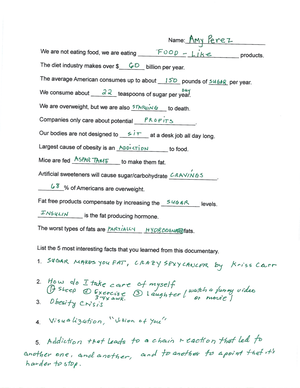 Name: Amy Perez
We are not eating food, we are eating FOOD - Like products.
The diet industry makes over $ 60 billion per year.
The average American consumes up to about 150 pounds of SUGAR per year.
We consume about 22 teaspoons of sugar per year. day
We are overweight, but we are also STARVING to death.
Companies only care about potential PROFITS.
Our bodies are not designed to sit at a desk job all day long.
Largest cause of obesity is an ADDICTION to food.
Mice are fed ASPARTAME to make them fat.
Artificial sweeteners will cause sugar/carbohydrate CRAVINGS.
68 % of Americans are overweight.
Fat free products compensate by increasing the SUGAR levels.
INSULIN is the fat producing hormone.
The worst types of fats are PARTIALLY HYDROGENATED fats.
List the 5 most interesting facts that you learned from this documentary.
1. SUGAR MAKES YOU FAT, CRAZY SEXY CANCER by Kriss Carr
2. How do I take care of myself
① Sleep ② Exercise ③ Laughter (watch a funny video or movie)
3. Obesity Crisis
4. Visualization, "Vision of You"
5. Addiction that leads to a chain reaction that led to
another one, and another, and to another to a point that it's
harder to stop.